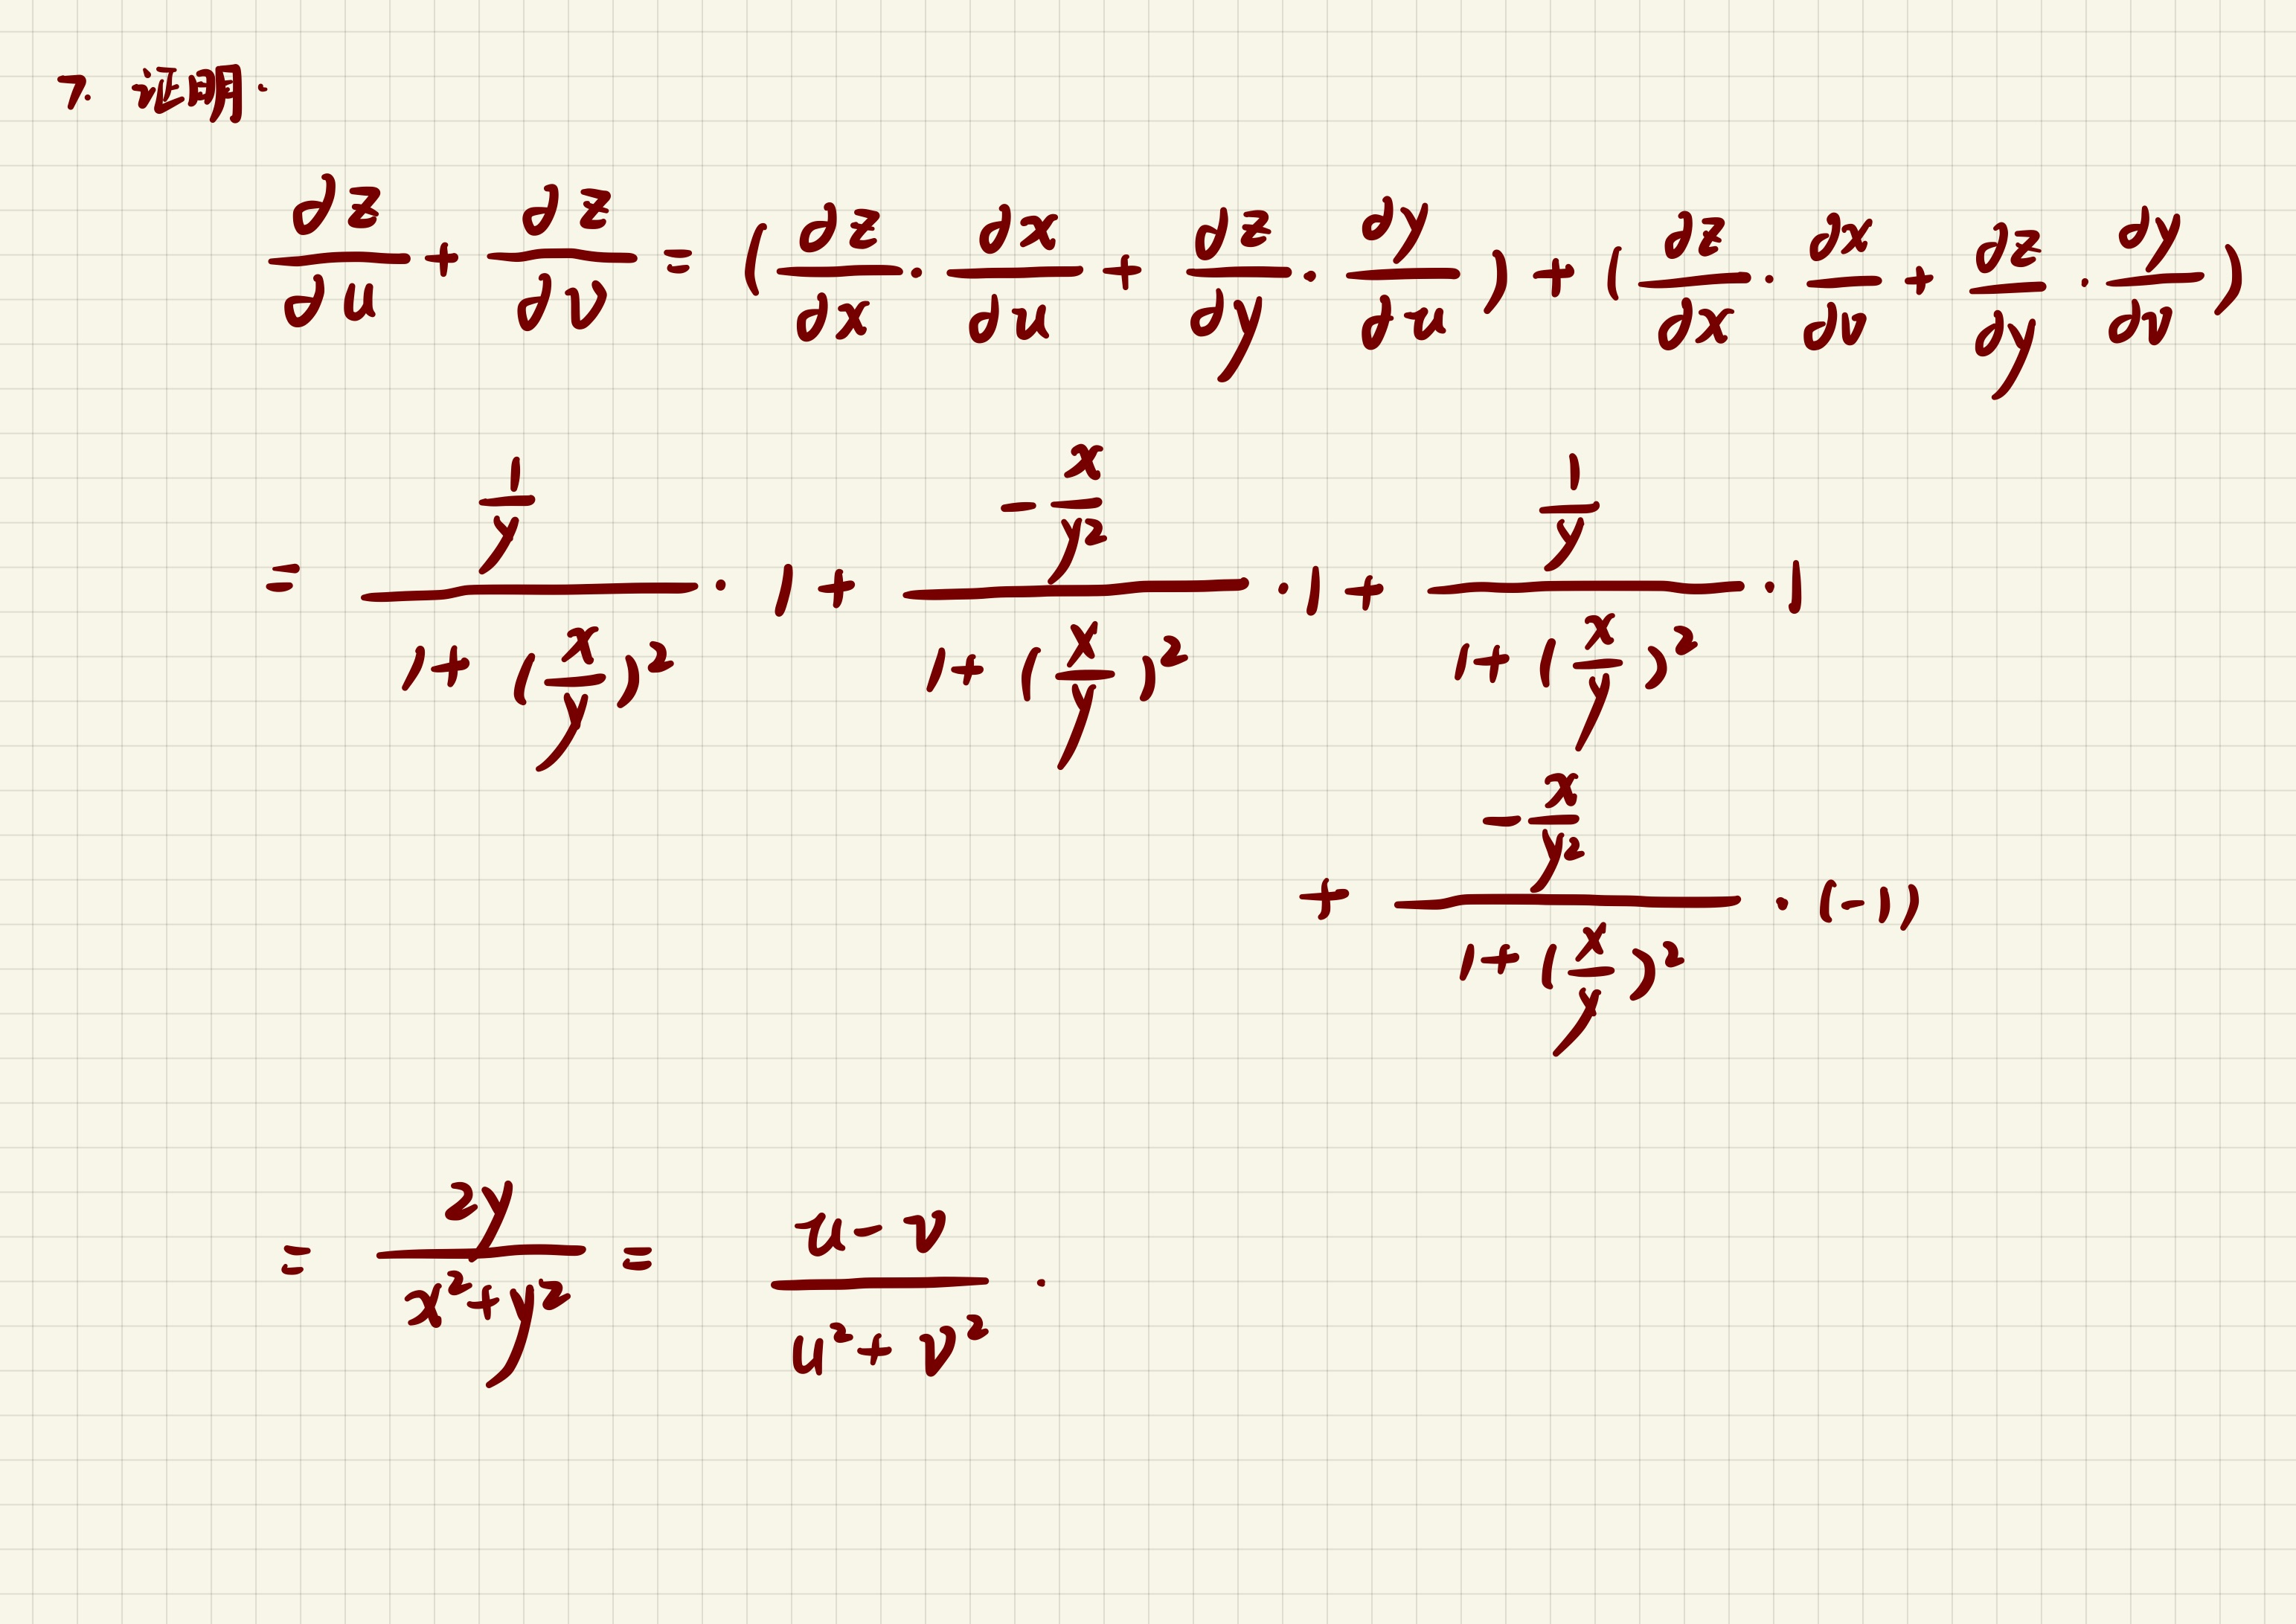 7. 证明.
∂z/∂u + ∂z/∂v = (∂z/∂x · ∂x/∂u + ∂z/∂y · ∂y/∂u) + (∂z/∂x · ∂x/∂v + ∂z/∂y · ∂y/∂v)
= (1/y)/(1+(x/y)²) · 1 + (-x/y²)/(1+(x/y)²) · 1 + (1/y)/(1+(x/y)²) · 1
+ (-x/y²)/(1+(x/y)²) · (-1)
= 2y/(x²+y²) = (u-v)/(u²+v²) .